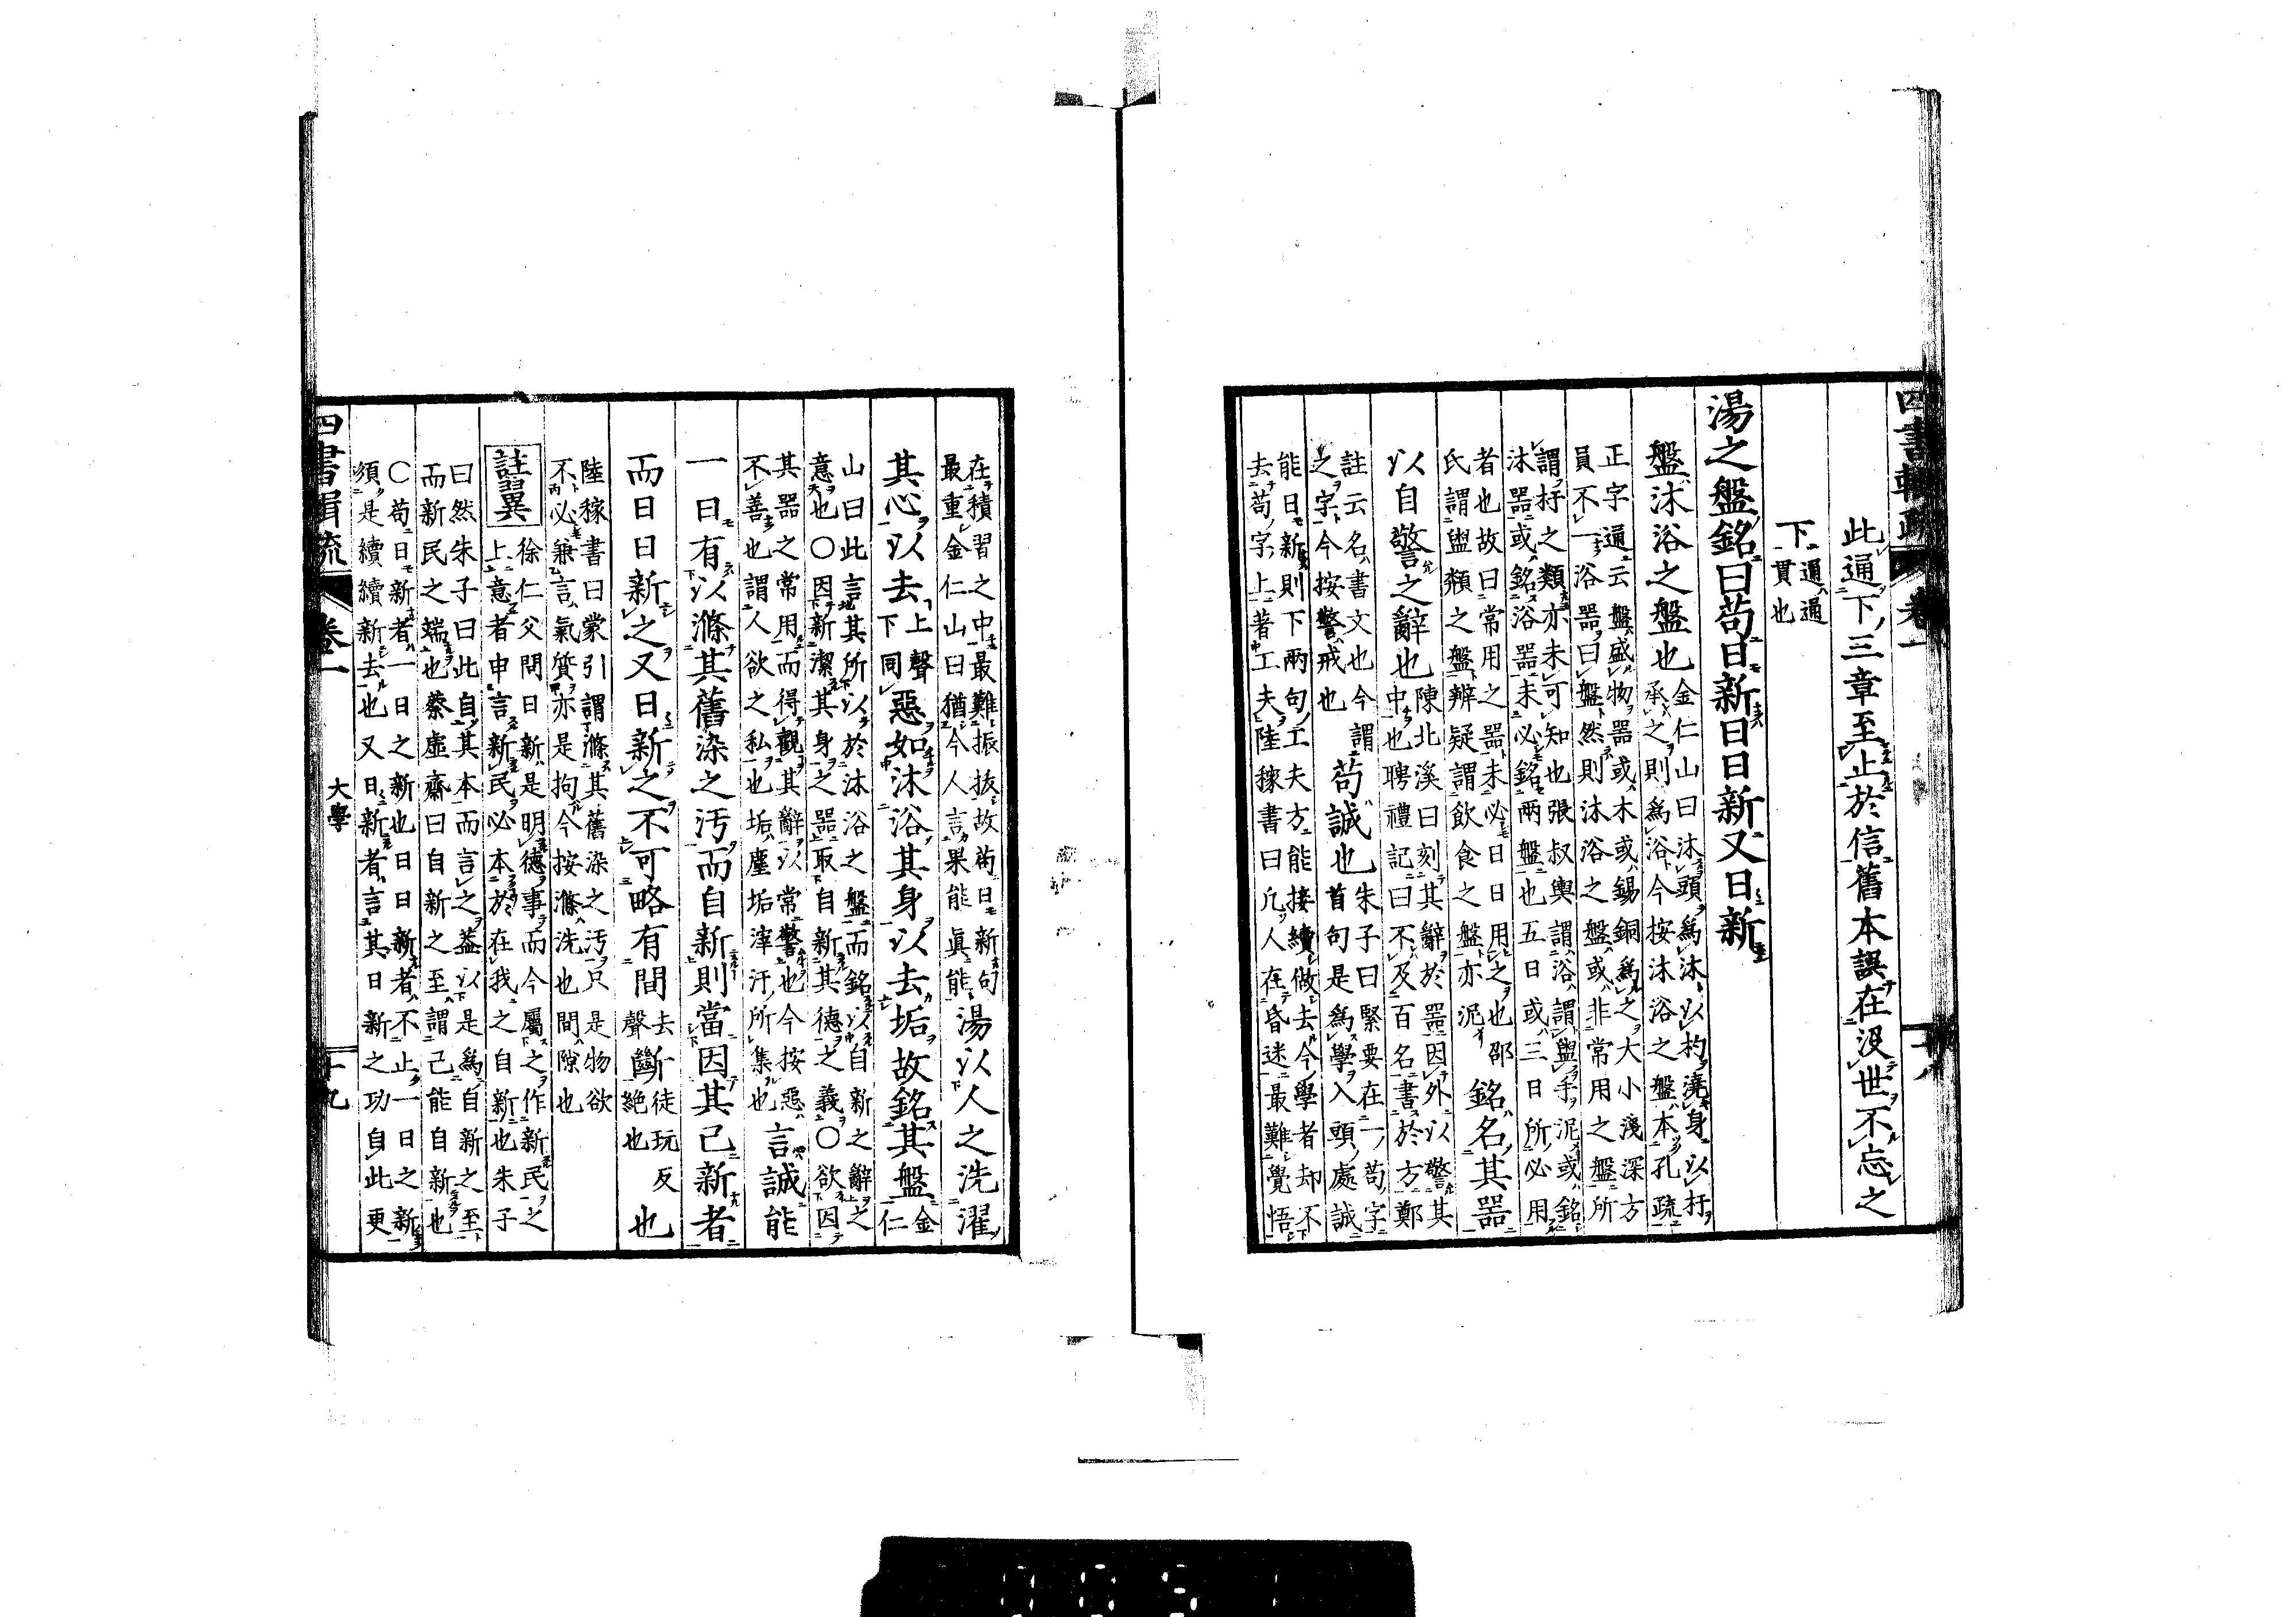 四書輯疏 卷一
此通下三章至止於信舊本誤在沒世不忘之
下通通
貫也
湯之盤銘曰苟日新日日新又日新
盤沐浴之盤也金仁山曰沐沐頭爲沐以杓澆身以杅
承之則爲浴今按沐浴之盤本孔疏
正字通云盤盛物器或木或錫銅爲之大小淺深方
員不一浴器曰盤然則沐浴之盤或非常用之盤所
謂杅之類亦未可知也張叔輿謂浴謂與手泥或銘
沐器或銘浴器未必銘兩盤也五日或三日所必用
者也故曰常用之器未必日日用之也邵
氏謂盥頮之盤辨疑謂飲食之盤亦泥
銘名其器
以自警之辭也陳北溪曰刻其辭於器因外以警其
中也聘禮記曰不及百名書於方鄭
註云名書文也今謂
之字今按警戒也
苟誠也朱子曰緊要在一苟字
首句是爲學入頭處誠
能日新則下兩句工夫方能接續做去今學者却不
去苟字上著工夫陸稼書曰凡人在昏迷最難覺悟
在積習之中最難振拔故苟日新句
最重金仁山曰猶今人言果能眞能
湯以人之洗濯
其心以去上聲
下同
惡如沐浴其身以去垢故銘其盤金
仁
山曰此言其所以於沐浴之盤而銘以自新之辭之
意也〇因新潔其身之器取自新其德之義〇欲因
其器之常用而得觀其辭以常警也今按惡
不善也謂人欲之私也垢塵垢滓汙所集也
言誠能
一日有以滌其舊染之汚而自新則當因其已新者
而日日新之又日新之不可略有間去
聲斷徒玩反
絕也
也
陸稼書曰蒙引謂滌其舊染之汚只是物欲
不必兼言氣質亦是拘今按滌洗也間隙也
註翼
徐仁父問曰新是明德事而今屬之作新民之
上意者申言新民必本於在我之自新也朱子
曰然朱子曰此自其本而言之蓋以是爲自新之至
而新民之端也蔡虛齋曰自新之至謂己能自新也
〇苟日新者一日之新也日日新者不止一日之新
須是續續新去也又日新者言其日新之功自此更
四書輯疏 卷一 大學 十九